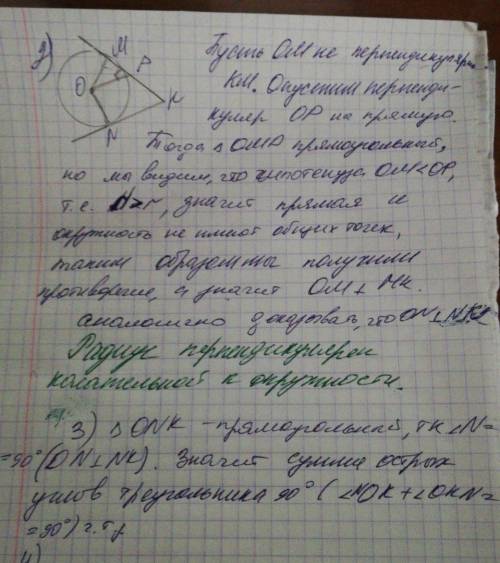 2)
M
P
O
K
N
Пусть ОМ не перпендикулярен
КМ. Опустим перпенди-
куляр ОР на прямую.
Тогда △ ОМР прямоугольный,
но мы видим, что гипотенуза ОМ<ОР,
т.е. >r, значит прямая и
окружность не имеют общих точек,
таким образом мы получили
противоречие, а значит ОМ⊥МК.
Аналогично доказывать, что ON⊥NK
Радиус перпендикулярен
касательной к окружности.
3) △ ONK - прямоугольный, тк ∠N=
=90° (ON⊥NK). Значит сумма острых
углов треугольника 90° (∠NOK+∠OKN=
=90°) ч.т.д
4)